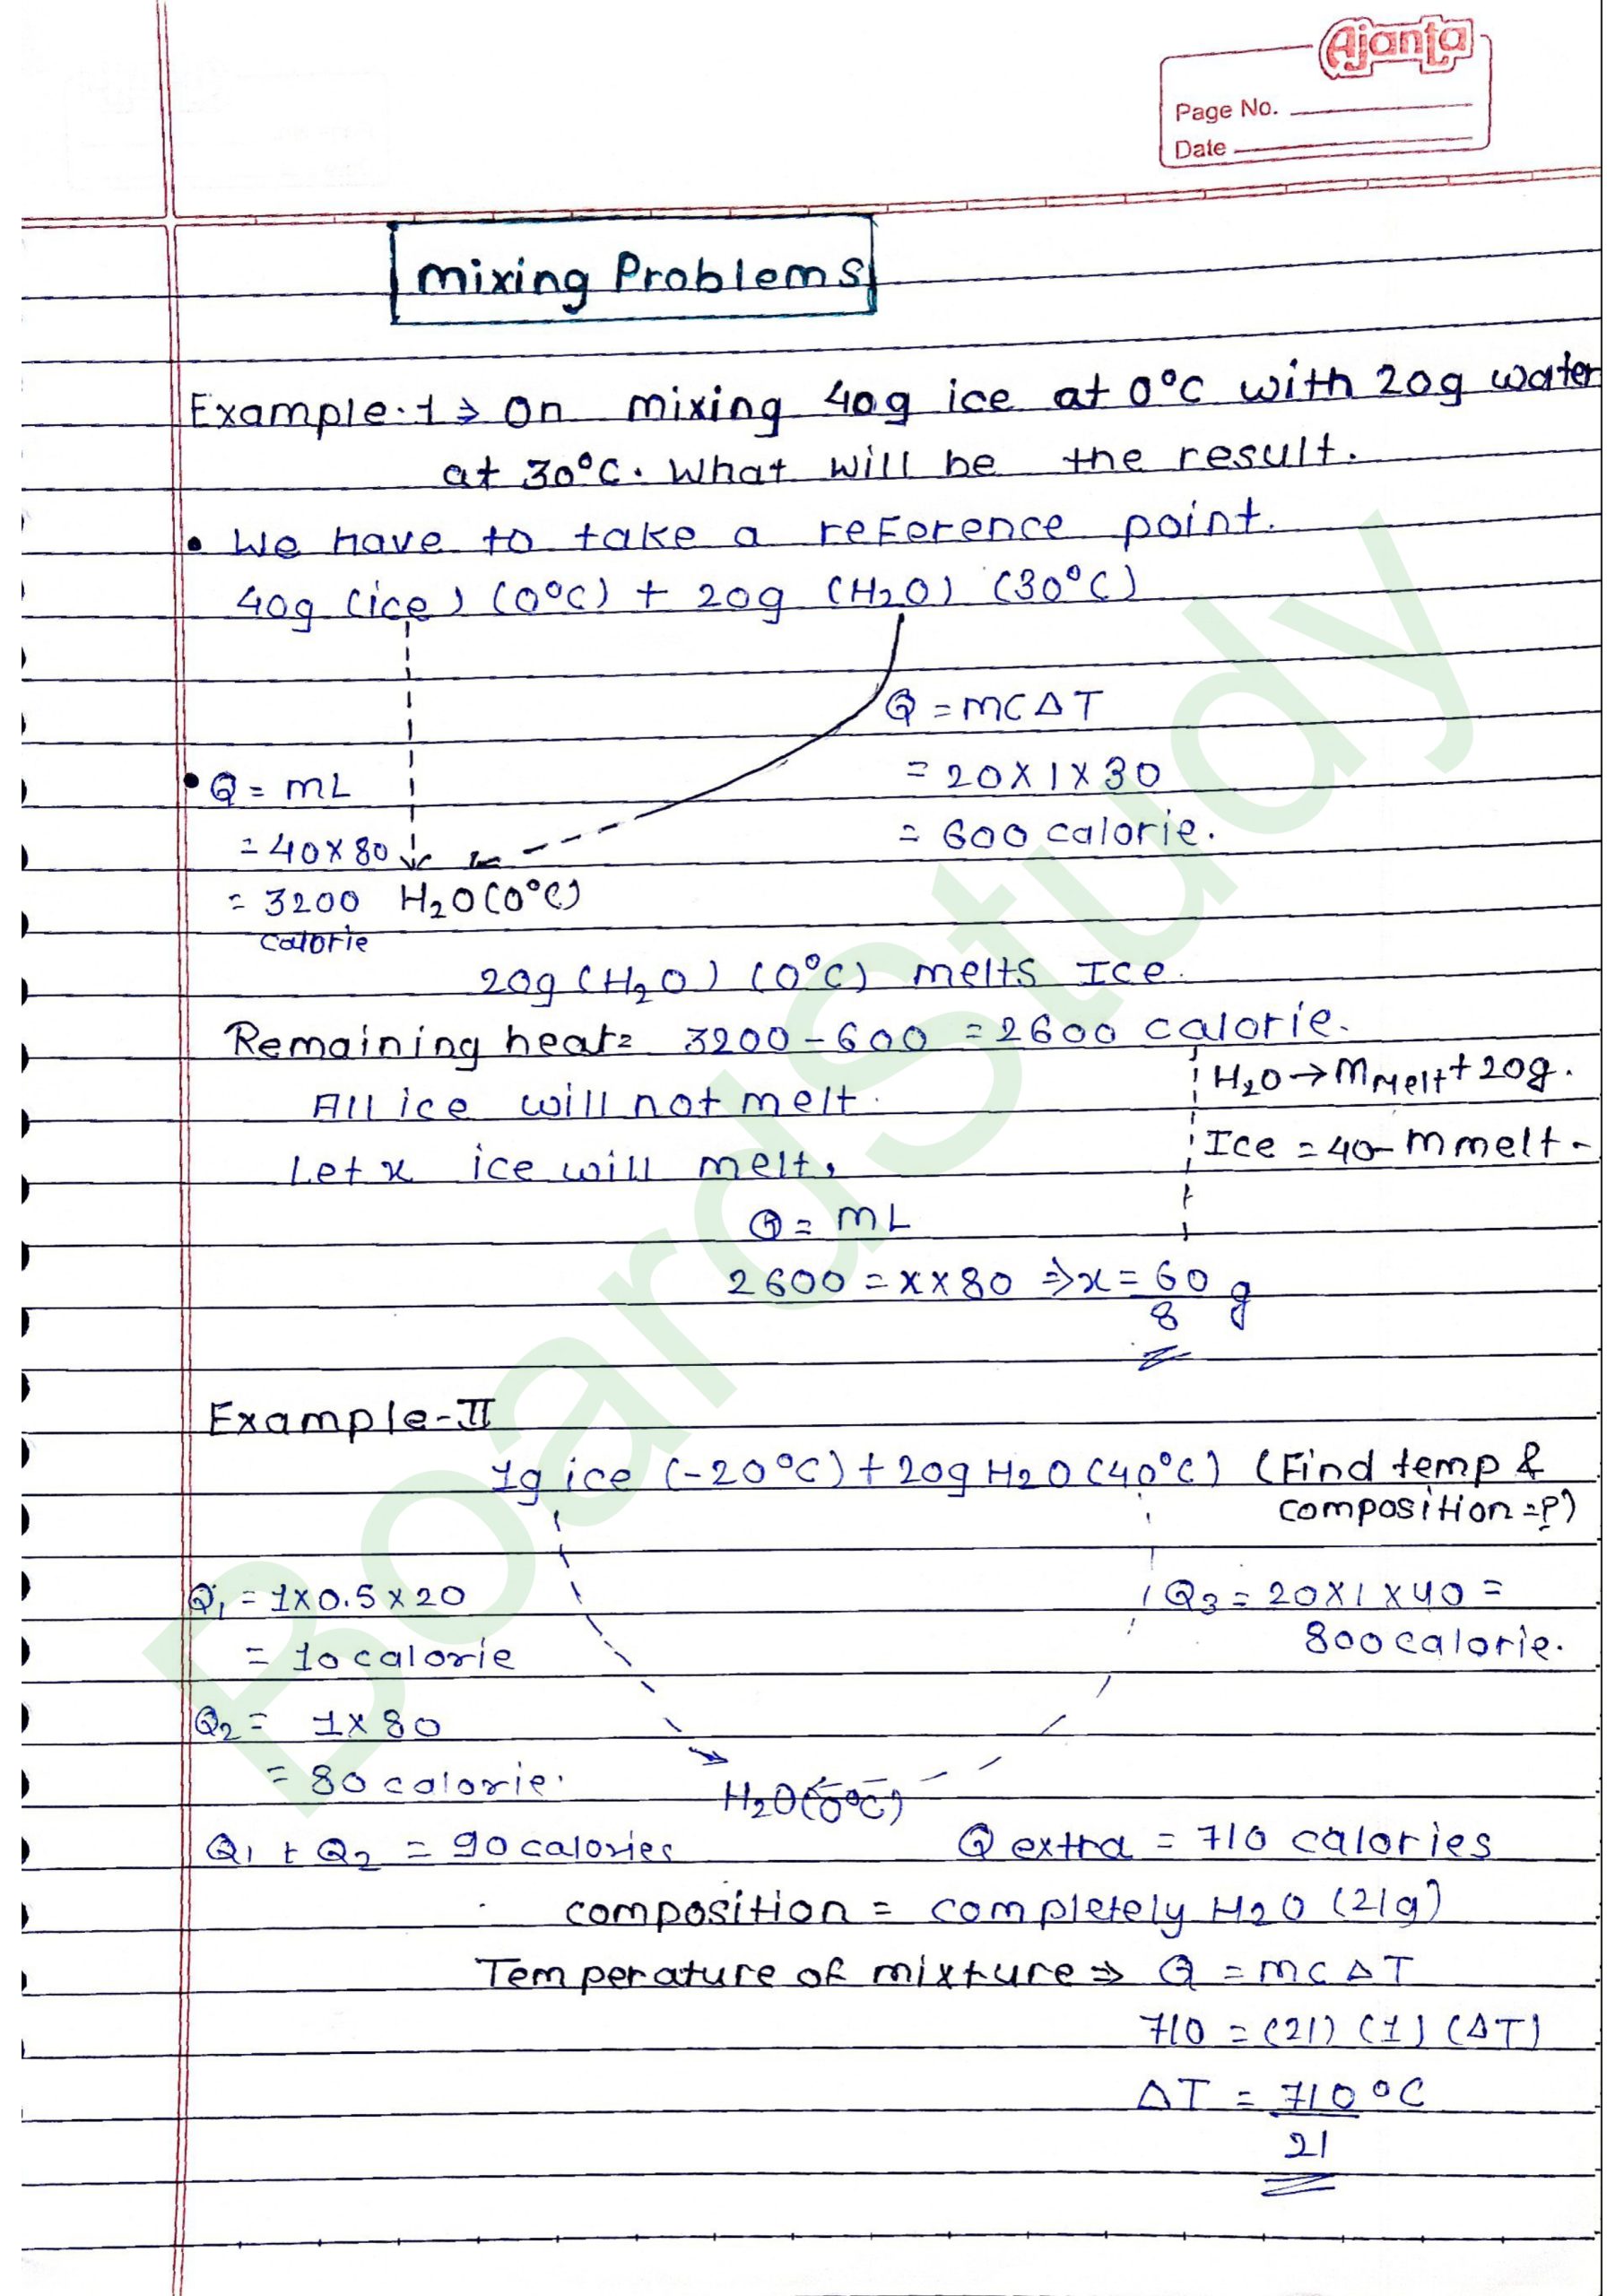 Ajanta
Page No.
Date
mixing Problems
Example:1⇒ On mixing 40g ice at 0°C with 20g water
at 30°C. What will be the result.
• We have to take a reference point.
40g (ice) (0°C) + 20g (H₂O) (30°C)
Q = mCΔT
= 20×1×30
= 600 calorie.
• Q = mL
= 40×80
= 3200
calorie
H₂O(0°C)
20g (H₂O) (0°C) melts Ice.
Remaining heat= 3200-600 = 2600 calorie.
All ice will not melt.
H₂O → mMelt + 20g.
Ice = 40- mmelt-
Let x ice will melt,
Q = mL
2600 = x×80 ⇒ x = 60/8 g
Example-II
1g ice (-20°C) + 20g H₂O (40°C) (Find temp &
composition =?)
Q₁ = 1×0.5×20
= 10 calorie
Q₃ = 20×1×40 =
800 calorie.
Q₂ = 1×80
= 80 calorie.
H₂O(0°C)
Q₁ + Q₂ = 90 calories
Q extra = 710 calories
composition = completely H₂O (21g)
Temperature of mixture ⇒ Q = mCΔT
710 = (21) (1) (ΔT)
ΔT = 710/21 °C
BoardStudy